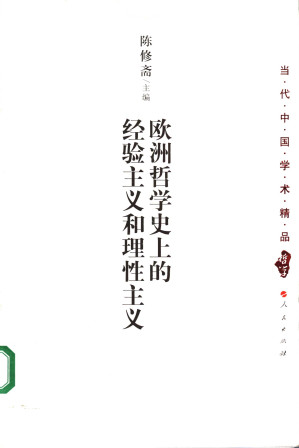 当·代·中·国·学·术·精·品
哲学
人民出版社
欧洲哲学史上的
经验主义和理性主义
陈修斋/主编